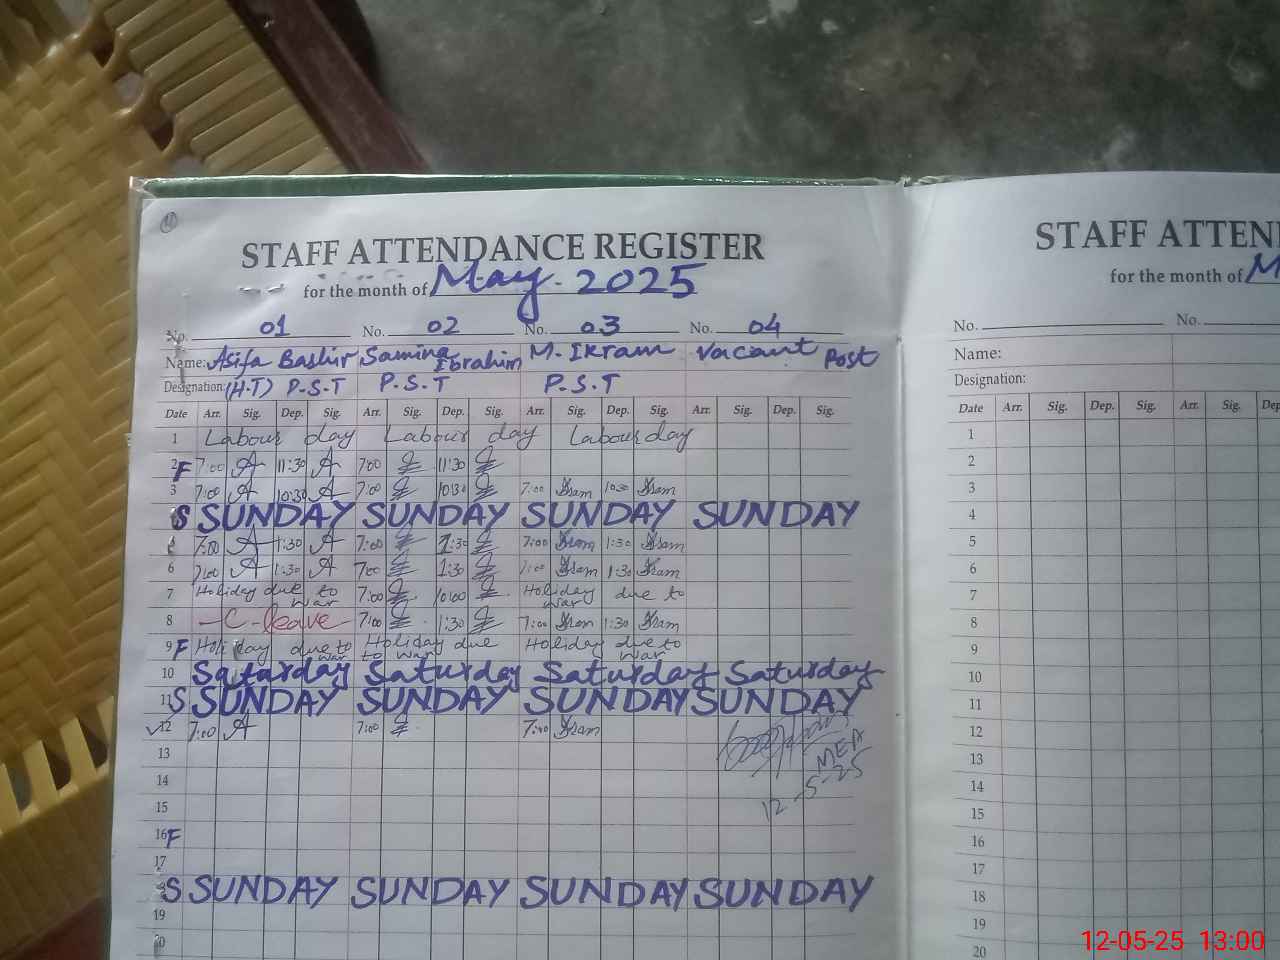 STAFF ATTENDANCE REGISTER
for the month of May. 2025
No. 01 No. 02 No. 03 No. 04
Name: Asifa Bashir Samina Ibrahim M. Ikram Vacant Post
Designation: (H.T) P.S.T P.S.T P.S.T
Date Arr. Sig. Dep. Sig. Arr. Sig. Dep. Sig. Arr. Sig. Dep. Sig. Arr. Sig. Dep. Sig.
1 Labour day Labour day Labour day
2 F 7:00 A 11:30 A 7:00 11:30
3 7:00 A 10:30 A 7:00 10:30 7:00 Ikram 10:30 Ikram
S SUNDAY SUNDAY SUNDAY SUNDAY
7:00 A 1:30 A 7:00 1:30 7:00 Ikram 1:30 Ikram
6 7:00 A 1:30 A 7:00 1:30 7:00 Ikram 1:30 Ikram
7 Holiday due to war 7:00 10:00 Holiday due to
8 - C-leave - 7:00 1:30 7:00 Ikram 1:30 Ikram
9 F Holiday due to war Holiday due to war Holiday due to war
10 Saturday Saturday Saturday Saturday
11 S SUNDAY SUNDAY SUNDAY SUNDAY
12 7:00 A 7:00 7:00 Ikram
MEA
12-5-25
13
14
15
16 F
17
S SUNDAY SUNDAY SUNDAY SUNDAY
19
20
STAFF ATTEN
for the month of M
No. No.
Name:
Designation:
Date Arr. Sig. Dep. Sig. Arr. Sig. Dep
1
2
3
4
5
6
7
8
9
10
11
12
13
14
15
16
17
18
19
20
12-05-25 13:00